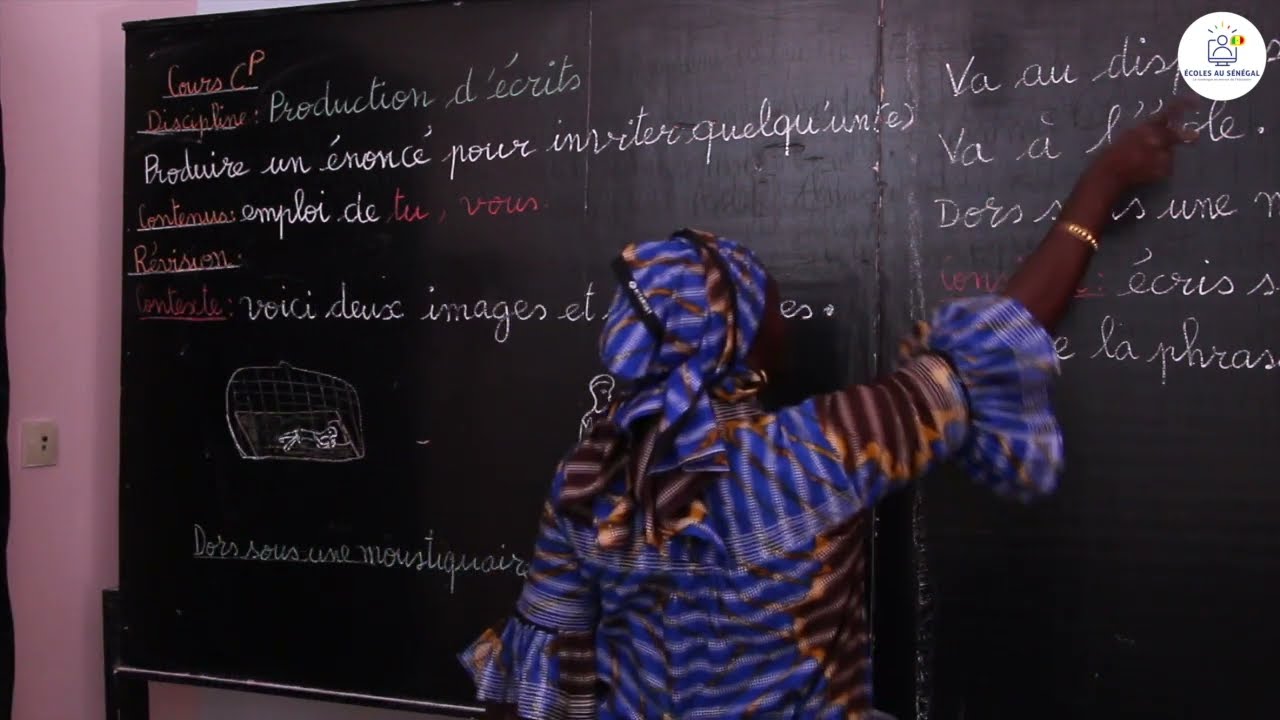 Cours CP
Discipline: Production d'écrits
Produire un énoncé pour inviter quelqu'un(e)
Contenus: emploi de tu, vous.
Révision:
Contexte: voici deux images et
Dors sous une moustiquaire
Va au
Va à l'école.
Dors sous une
écris
la phrase
ÉCOLES AU SÉNÉGAL